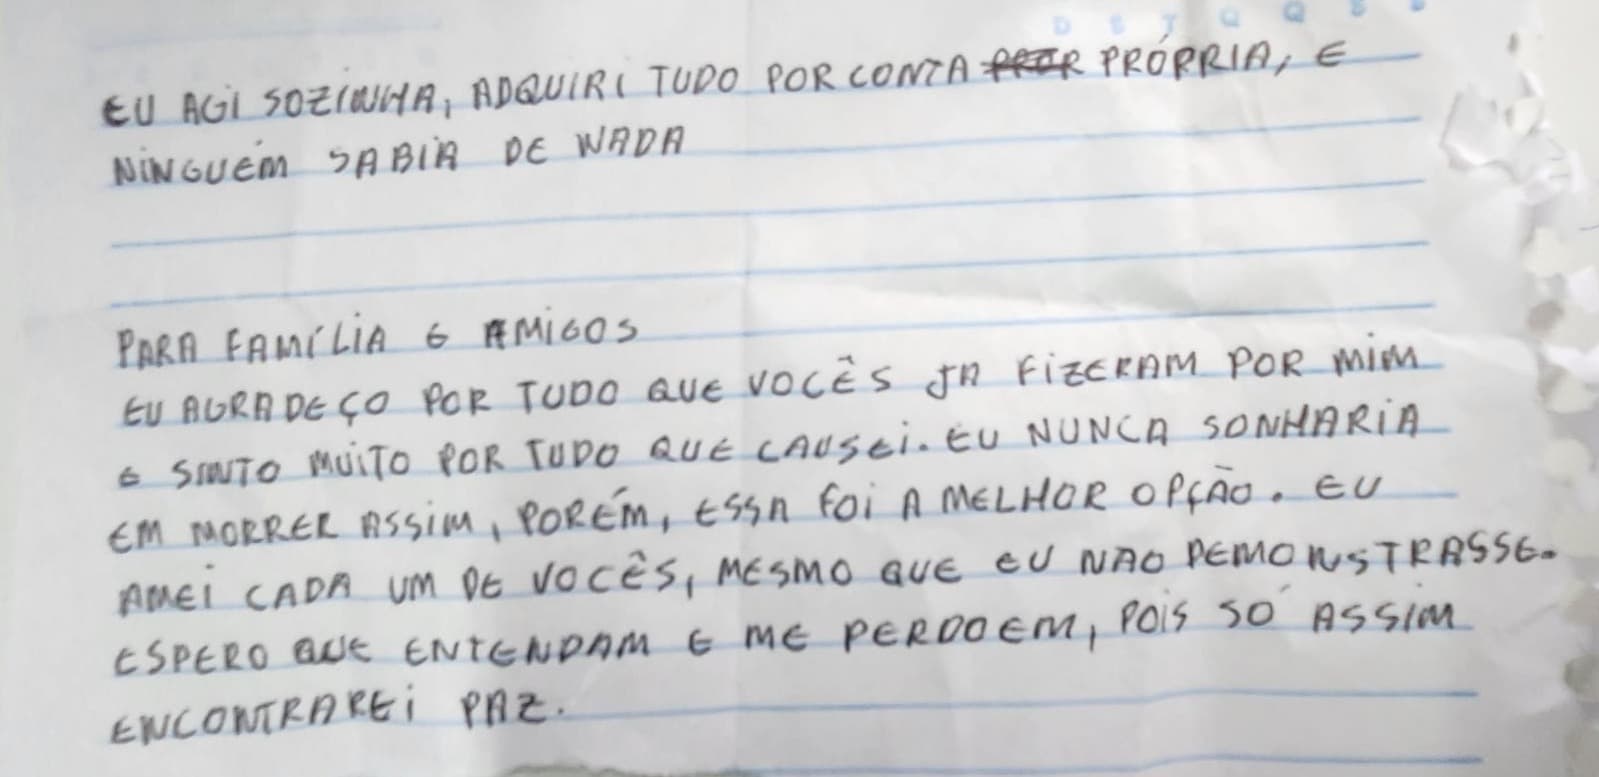 D S T Q Q S S
EU AGI SOZINHA, ADQUIRI TUDO POR CONTA PRÓPRIA, E
NINGUÉM SABIA DE NADA
PARA FAMÍLIA E AMIGOS
EU AGRADEÇO POR TUDO QUE VOCÊS JA FIZERAM POR MIM
E SINTO MUITO POR TUDO QUE CAUSEI. EU NUNCA SONHARIA
EM MORRER ASSIM, PORÉM, ESSA FOI A MELHOR OPÇÃO. EU
AMEI CADA UM DE VOCÊS, MESMO QUE EU NAO DEMONSTRASSE.
ESPERO QUE ENTENDAM E ME PERDOEM, POIS SÓ ASSIM
ENCONTRAREI PAZ.